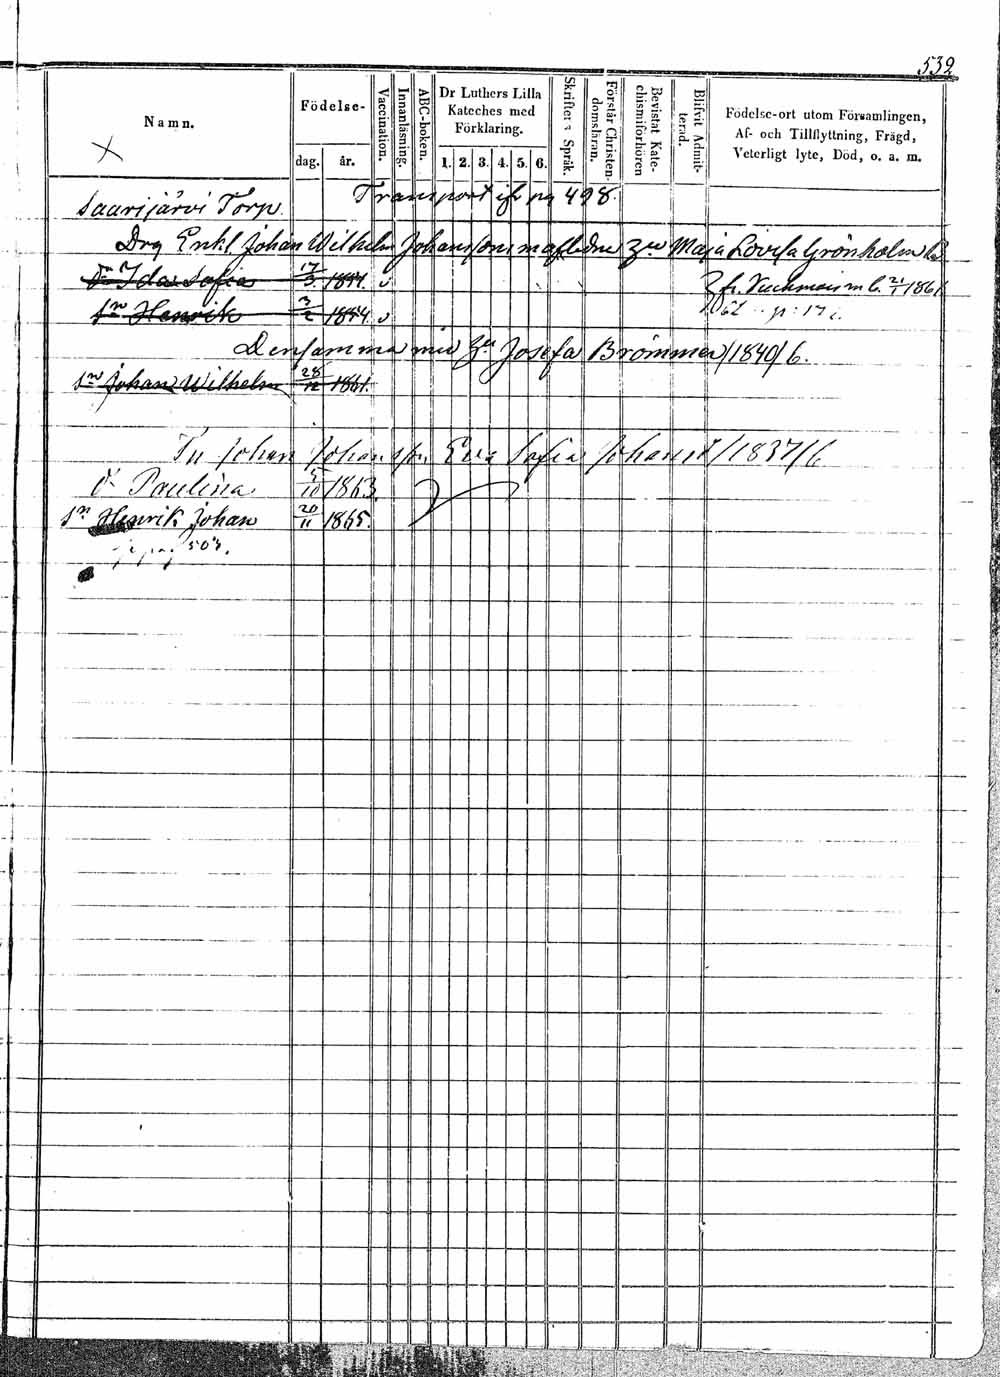 532
Namn.
Födelse-
dag.
år.
Vaccination.
Innanläsning.
ABC-boken.
Dr Luthers Lilla
Kateches med
Förklaring.
1. 2. 3. 4. 5. 6.
Skriftens Språk.
Förstår Christen-
domsläran.
Bevistat Kate-
chismiförhören
Blifvit Admit-
terad.
Födelse-ort utom Församlingen,
Af- och Tillflyttning, Frägd,
Veterligt lyte, Död, o. a. m.
Saarijärvi Torp. Transport ifr pag 498.
Drg Enkl. Johan Wilhelm Johanssons m afledne Maja Lovisa Grönholm
Dr Ida Sofia 17/3 1851. v fr. 21/1 1861
Sn Henrik 3/2 1854. v
Densamma med Josefa Brömmer /1840/6.
Sn Johan Wilhelm 28/12 1861.
Johan Johansson Eva Sofia Johansd /1837/6
dr Paulina 5/10 1863.
Sn Henrik Johan 20/11 1865.
pag 503.